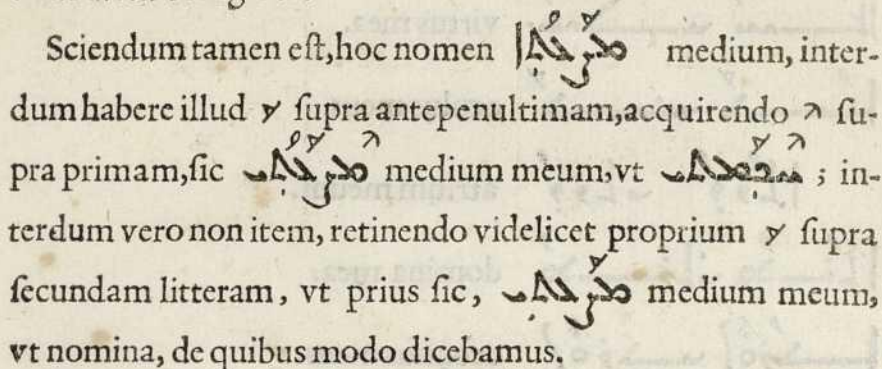 Sciendum tamen eſt, hoc nomen ܡܨܥܬܐ medium, inter-
dum habere illud ſupra antepenultimam, acquirendo ſu-
pra primam, ſic ܡܨܥܬܝ medium meum, vt ; in-
terdum vero non item, retinendo videlicet proprium ſupra
ſecundam litteram, vt prius ſic, ܡܨܥܬܝ medium meum,
vt nomina, de quibus modo dicebamus.